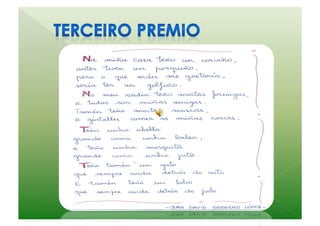 TERCEIRO PREMIO
Na miña casa teño un corviño,
antes tiven un periquiño,
pero o que máis me gustaría,
sería ter un golfiño.
No meu xardín teño moitas formigas,
e todas son miñas amigas.
Tamén teño moitas moscas,
e gústalles comer as miñas roscas.
Teño unha abella
grande coma unha balea,
e teño unha mosquita
grande coma unha pita.
Teño tamén un gato
que sempre anda detrás do rato
E tamén teño un lobo
que sempre anda detrás do polo.